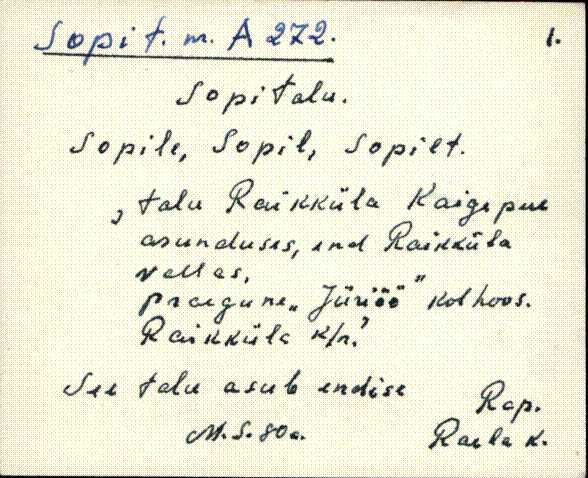 Sopi t. m. A 272. 1.
Sopi talu.
Sopile, Sopil, Sopilt.
„talu Raikküla Kaigepere
asunduses, end Raikküla
vallas,
praegune „Jüriöö" kolhoos.
Raikküla k/n."
See talu asub endise
M. S. 80 a.
Rap.
Raela k.